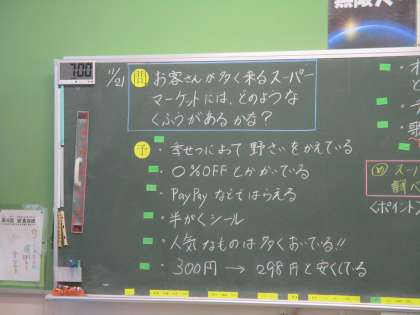 無限大
7:00
11/21
問 お客さんが多く来るスーパー
マーケットには、どのような
くふうがあるかな？
予 ・季せつによって野さいをかえている
・○%OFFとかかいている
・PayPayなどではらえる
・半がくシール
・人気なものは多くおいてる!!
・300円 → 298円と安くしてる
め スー
調べ
<ポイント